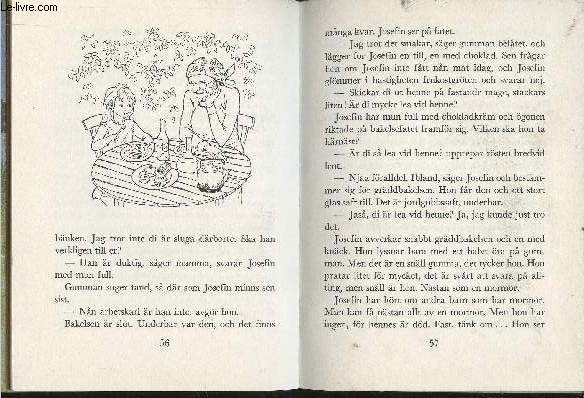 Le-livre.com
bänken. Jag tror inte di är sluga därborte. Ska han
verkligen till er?
— Han är duktig, säger mamma, svarar Josefin
med mun full.
Gumman suger tand, så där som Josefin minns sen
sist.
— Nån arbetskarl är han inte, avgör hon.
Bakelsen är slut. Underbar var den, och det finns
56
många kvar. Josefin ser på fatet.
— Jag tror det smakar, säger gumman belåtet, och
lägger för Josefin en till, en med choklad. Sen frågar
hon om Josefin inte fått nån mat idag, och Josefin
glömmer i hastigheten frukostgröten och svarar nej.
— Skickar di ut henne på fastande mage, stackars
liten! Är di mycke lea vid henne?
Josefin har mun full med chokladkräm och ögonen
riktade på bakelsefatet framför sig. Vilken ska hon ta
härnäst?
— Är di så lea vid henne? upprepar rösten bredvid
lent.
— Njaa föralldel. Ibland, säger Josefin och bestäm-
mer sig för gräddbakelsen. Hon får den och ett stort
glas saft till. Det är jordgubbssaft, underbar.
— Jaså, di är lea vid henne? Ja, jag kunde just tro
det.
Josefin avverkar snabbt gräddbakelsen och en med
knäck. Hon lyssnar bara med ett halvt öra på gum-
man. Men det är en snäll gumma, det tycker hon. Hon
pratar litet för mycket, det är svårt att svara på all-
ting, men snäll är hon. Nästan som en mormor.
Josefin har hört om andra barn som har mormor.
Man kan få nästan allt av en mormor. Men hon har
ingen, för hennes är död. Fast, tänk om . . . Hon ser
57